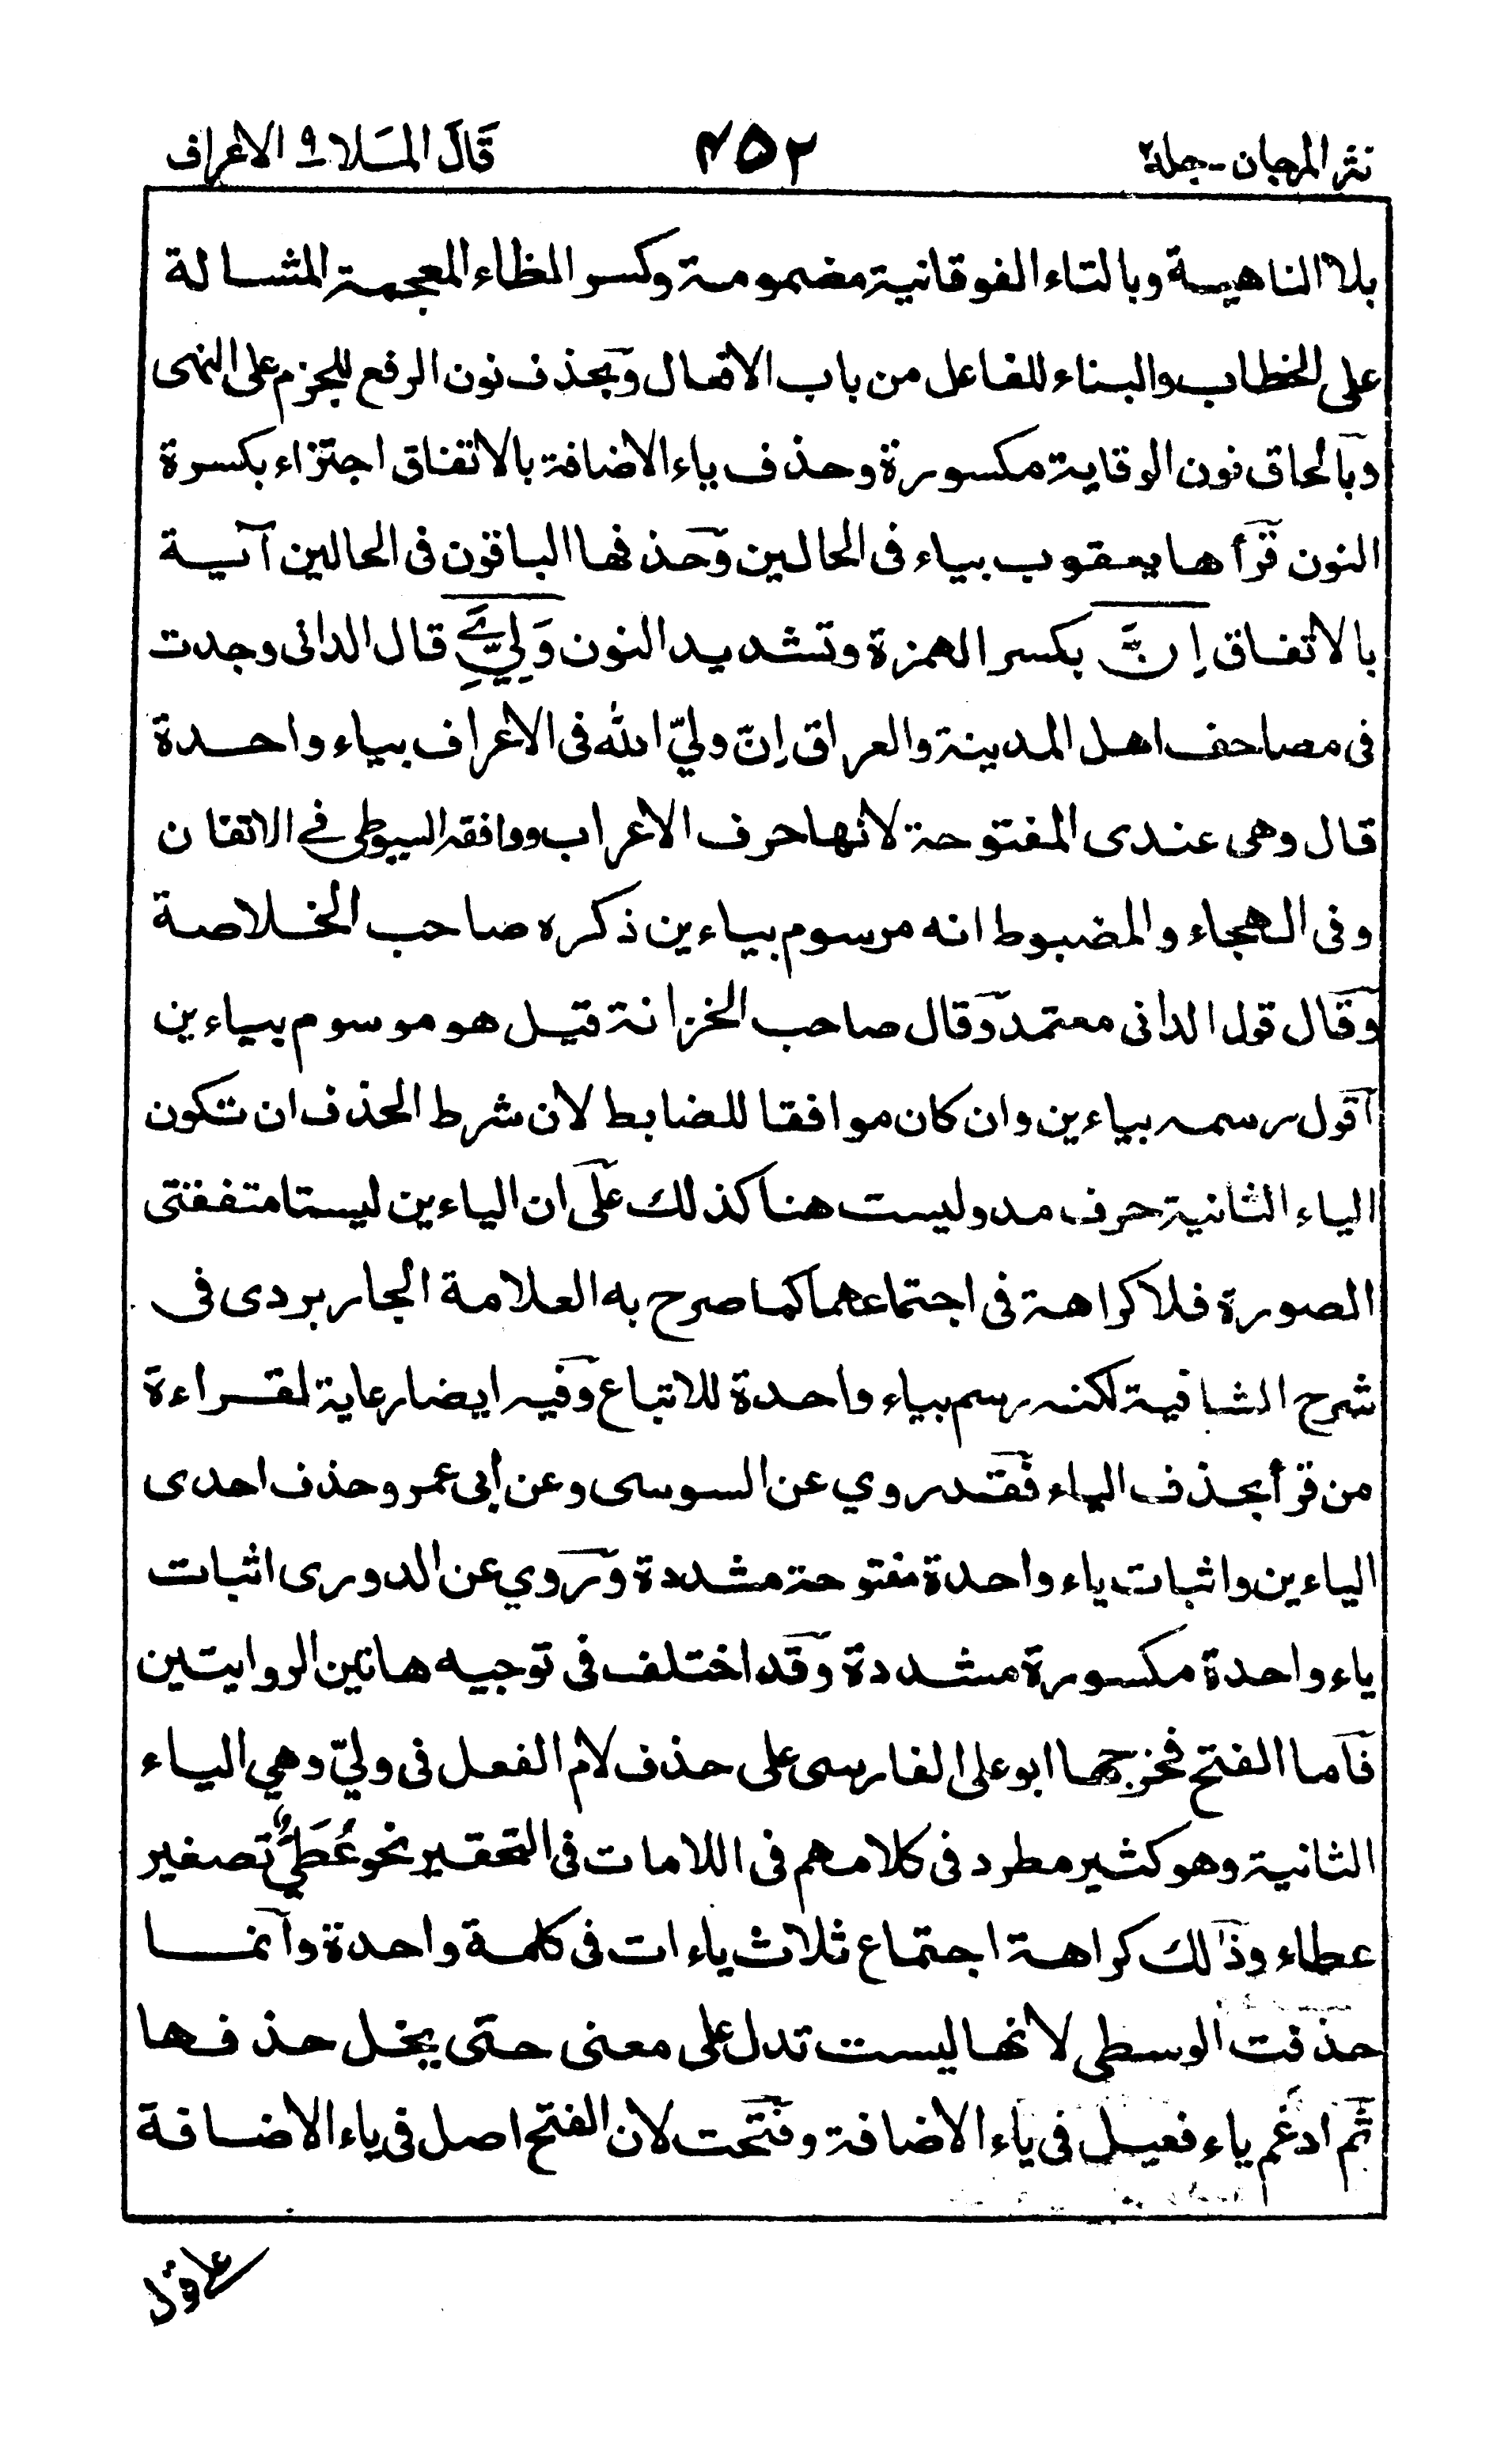 نثر المرجان - جلد٢ ٤٥٢ قَالَ المَلا ٩ الاعراف
بلا الناهية وبالتاء الفوقانية مضمومة وكسر الظاء المعجمة المشالة
على الخطاب والبناء للفاعل من باب الافعال وبحذف نون الرفع للجزم على النهى
وبالحاق نون الوقاية مكسورة وحذف ياء الاضافة بالاتفاق اجتزاء بكسرة
النون قرأها يعقوب بياء فى الحالين وحذفها الباقون فى الحالين آية
بالاتفاق إِنَّ بكسر الهمزة وتشديد النون وَلِيِّۦَ قال الدانى وجدت
فى مصاحف اهل المدينة والعراق إنّ وليّ الله فى الاعراف بياء واحدة
قال وهى عندى المفتوحة لانها حرف الاعراب ووافقه السيوطى في الاتقان
وفى الهجاء والمضبوط انه مرسوم بياءين ذكره صاحب الخلاصة
وقال قول الدانى معتمد وقال صاحب الخزانة قيل هو موسوم بياءين
آقول رسمه بياءين وان كان موافقا للضابط لان شرط الحذف ان تكون
الياء الثانية حرف مد وليست هنا كذلك على ان الياءين ليستا متفقتى
الصورة فلا كراهة فى اجتماعهما كما صرح به العلامة الجاربردى فى
شرح الشافية لكنه رسم بياء واحدة للاتباع وفيه ايضا رعاية لقراءة
من قرأ بحذف الياء فقد روي عن السوسى وعن أبى عمرو حذف احدى
الياءين واثبات ياء واحدة مفتوحة مشددة وروي عن الدورى اثبات
ياء واحدة مكسورة مشددة وقد اختلف فى توجيه هاتين الروايتين
فآما الفتح فخرجها ابو على الفارسى على حذف لام الفعل فى وليّ وهي الياء
الثانية وهو كثير مطرد فى كلامهم فى اللامات فى التحقير نحو عُطَيٌّ تصغير
عطاء وذالك كراهة اجتماع ثلاث ياءات فى كلمة واحدة وآنما
حذفت الوسطى لانها ليست تدل على معنى حتى يخل حذفها
ثم ادغم ياء فعيل فى ياء الاضافة وفتحت لان الفتح اصل فى ياء الاضافة